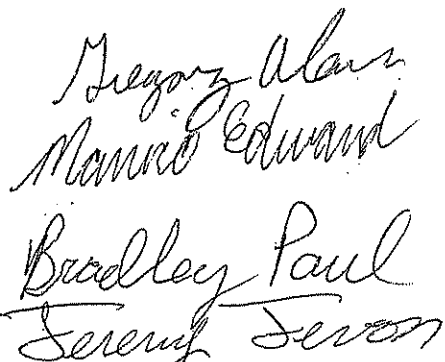 Gregory Alan
Edward
Bradley Paul
Jeremy Jevon